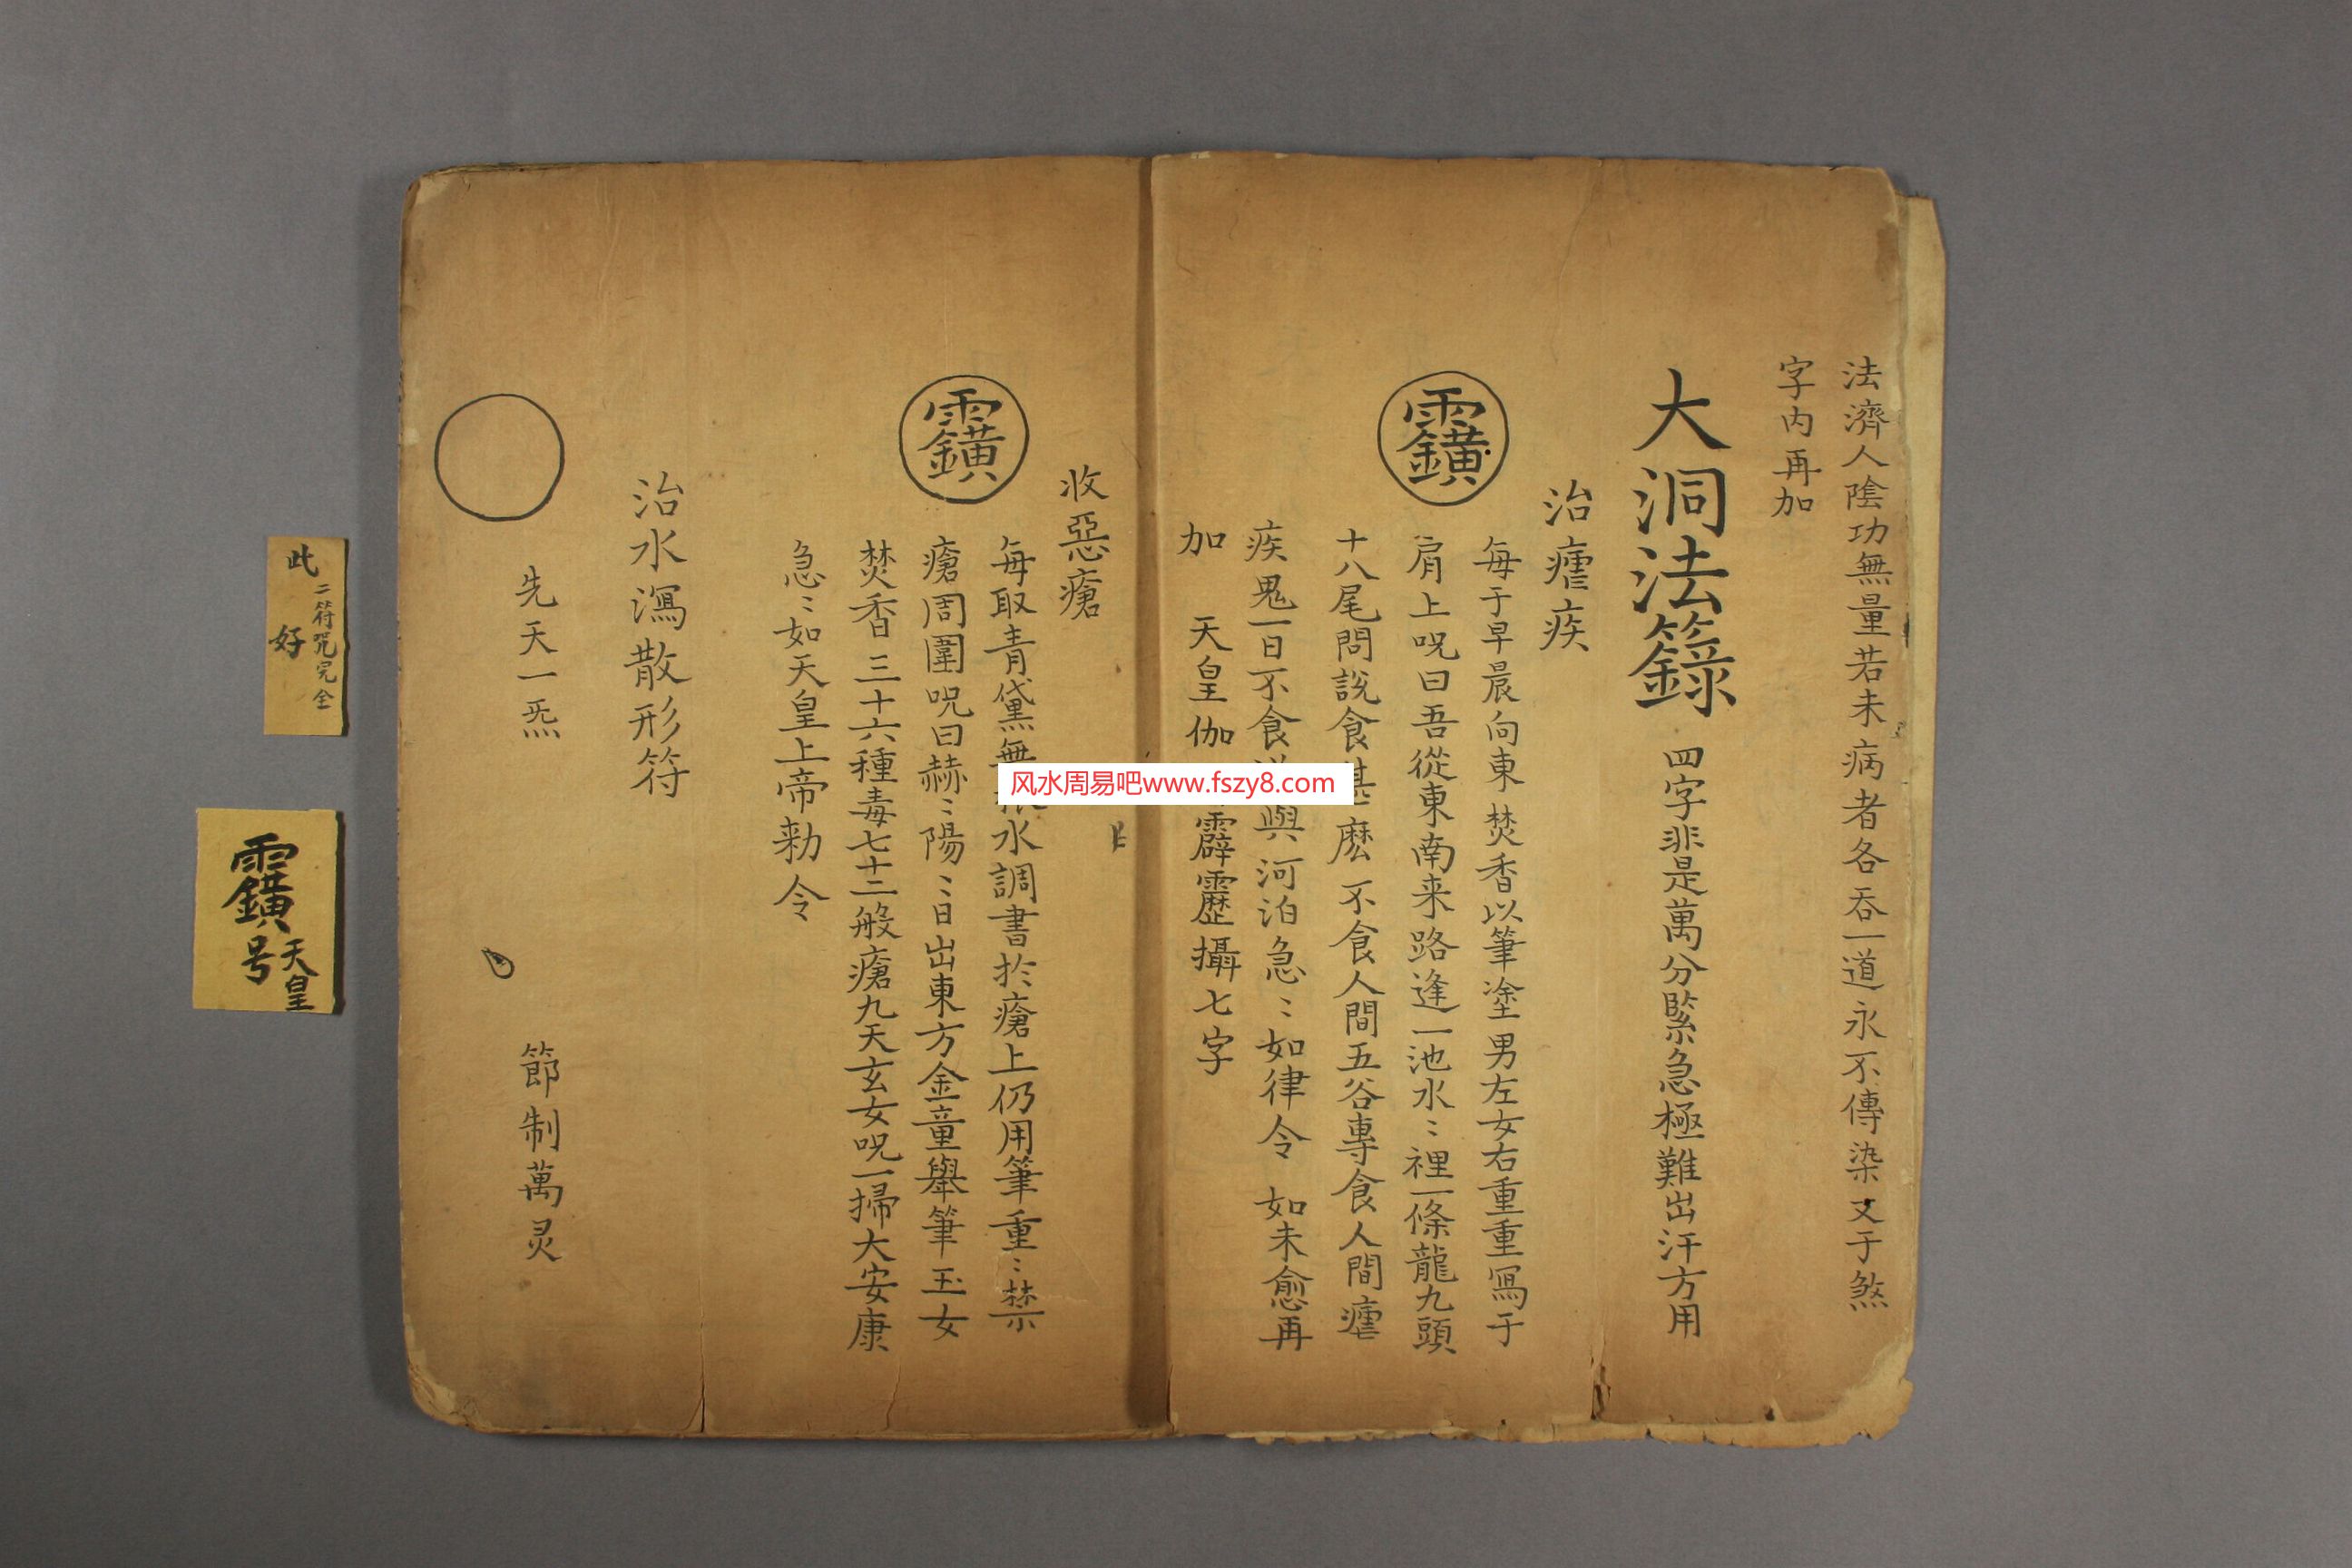 法濟人陰功無量若未病者各吞一道永不傳染又于煞
字内再加
大洞法籙 四字非是萬分緊急極難出汗方用
治瘧疾
每于早晨向東焚香以筆塗男左女右重重寫于
肩上咒曰吾從東南来路逢一池水〻裡一條龍九頭
十八尾問說食甚麽不食人間五谷專食人間瘧
疾鬼一日不食 與河泊急〻如律令 如未愈再
加 天皇伽 霹靂攝七字
收惡瘡
每取青黛無 水調書於瘡上仍用筆重〻禁
瘡周圍咒曰赫〻陽〻日出東方金童舉筆玉女
焚香三十六種毒七十二般瘡九天玄女咒一掃大安康
急〻如天皇上帝勅令
治水瀉散形符
先天一炁 節制萬灵
此二符咒完全
好
天皇
号
风水周易吧www.fszy8.com